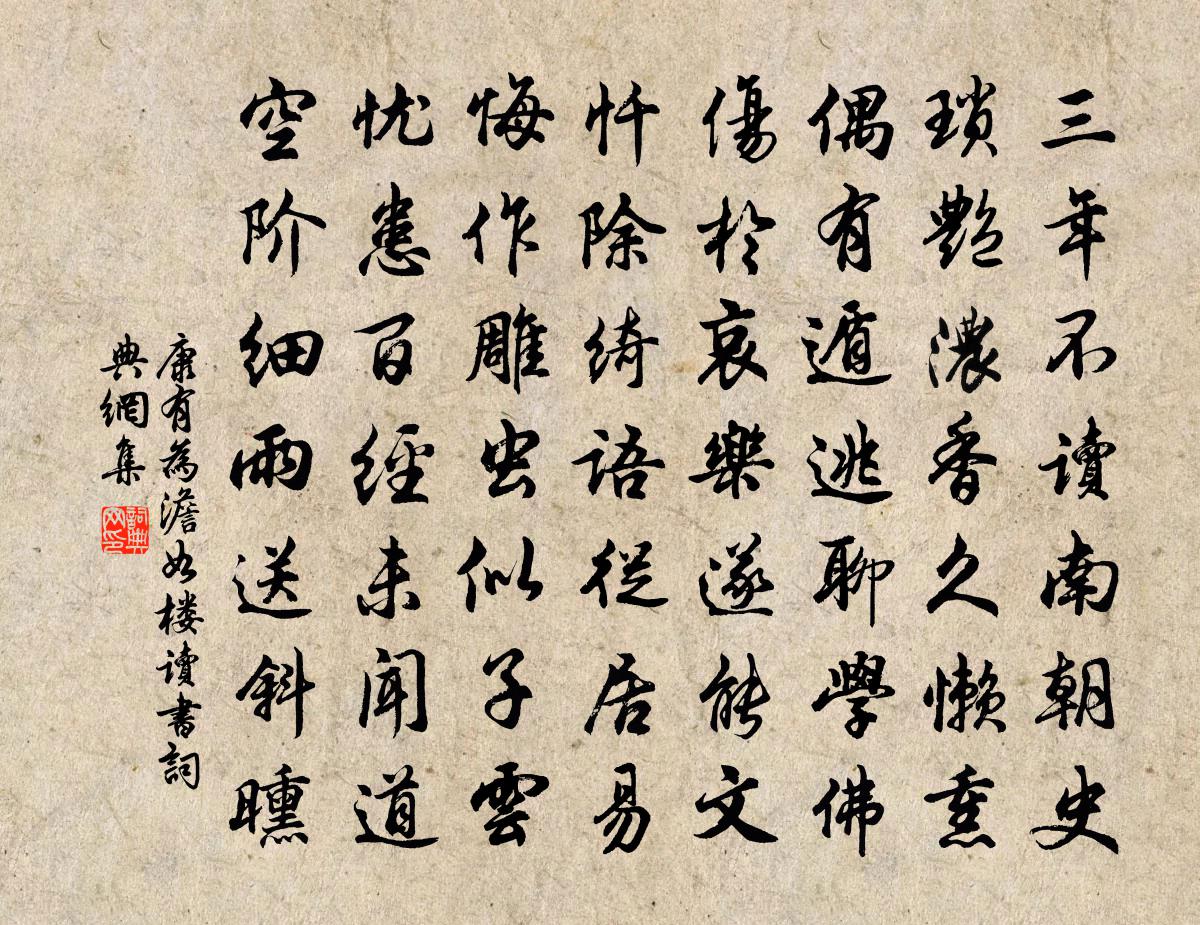 三年不讀南朝史
瑣艷濃香久懶熏
偶有遁逃聊學佛
傷於哀樂遂能文
忏除綺語從居易
悔作雕虫似子雲
忧患百經未聞道
空阶细雨送斜曛
康有為澹如楼讀書詞
典網集
詞典
网印